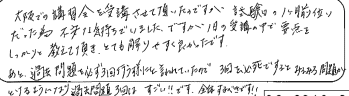 大阪での講習会を受講させて頂いたのですが、試験日の1ヶ月前位い
だった為、不安な気持でいました。ですが、1日の受講の中で要点を
しっかりと教えて頂き、とても解りやすく良かったです。
あと、過去問題を必ず3回はする様にと言われていたので、3回を必死ですると、みるみる問題が
とけるようになり、過去問題3回は、すごい!!です。全員すべきです!!